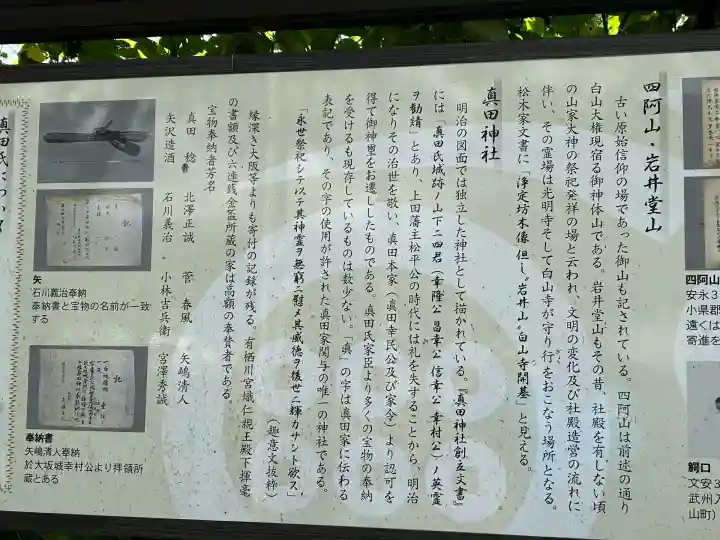 四阿山・岩井堂山
古い原始信仰の場であった御山も記されている。四阿山は前述の通り
白山大権現宿る御神体山である。岩井堂山もその昔、社殿を有しない頃
の山家大神の祭祀発祥の場と云われ、文明の変化及び社殿造営の流れに
伴い、その霊場は光明寺そして白山寺が守り行をおこなう場所となる。
松木家文書に「浄定坊木像 但し。岩井山。白山寺開基」と見える。
真田神社
明治の図面では独立した神社として描かれている。『真田神社創立文書』
には「真田氏城跡ノ山下ニ四君(幸隆公 昌幸公 信幸公 幸村公)ノ英霊
ヲ勧請」とあり、上田藩主松平公の時代には礼を失することから、明治
になりその治世を敬い、真田本家(真田幸民公及び家令)より認可を
得て御神璽をお遷ししたものである。真田氏家臣より多くの宝物の奉納
を受けるも現存しているものは数少ない。「眞」の字は真田家に伝わる
表記であり、その字の使用が許された真田家関与の唯一の神社である。
「永世祭祀シテ以テ其神霊ヲ無窮ニ慰メ其威徳ヲ後世ニ輝カサント欲ス」
(趣意文抜粋)
縁深き大阪等よりも寄付の記録が残る。有栖川宮熾仁親王殿下揮毫
の書額及び六連銭金盃所蔵の家は高額の奉賛者である。
宝物奉納者芳名
真田 稔 北澤正誠 菅 春風 矢嶋清人
矢沢造酒 石川義治 小林吉兵衛 宮澤秀誠
矢
石川義治奉納
奉納書と宝物の名前が一致
する
奉納書
矢嶋清人奉納
於大坂城幸村公より拝領所
蔵とある
真田氏について
四阿山
安永3
小県郡
遠くは
寄進を
鰐口
文安3
武州入
山町)